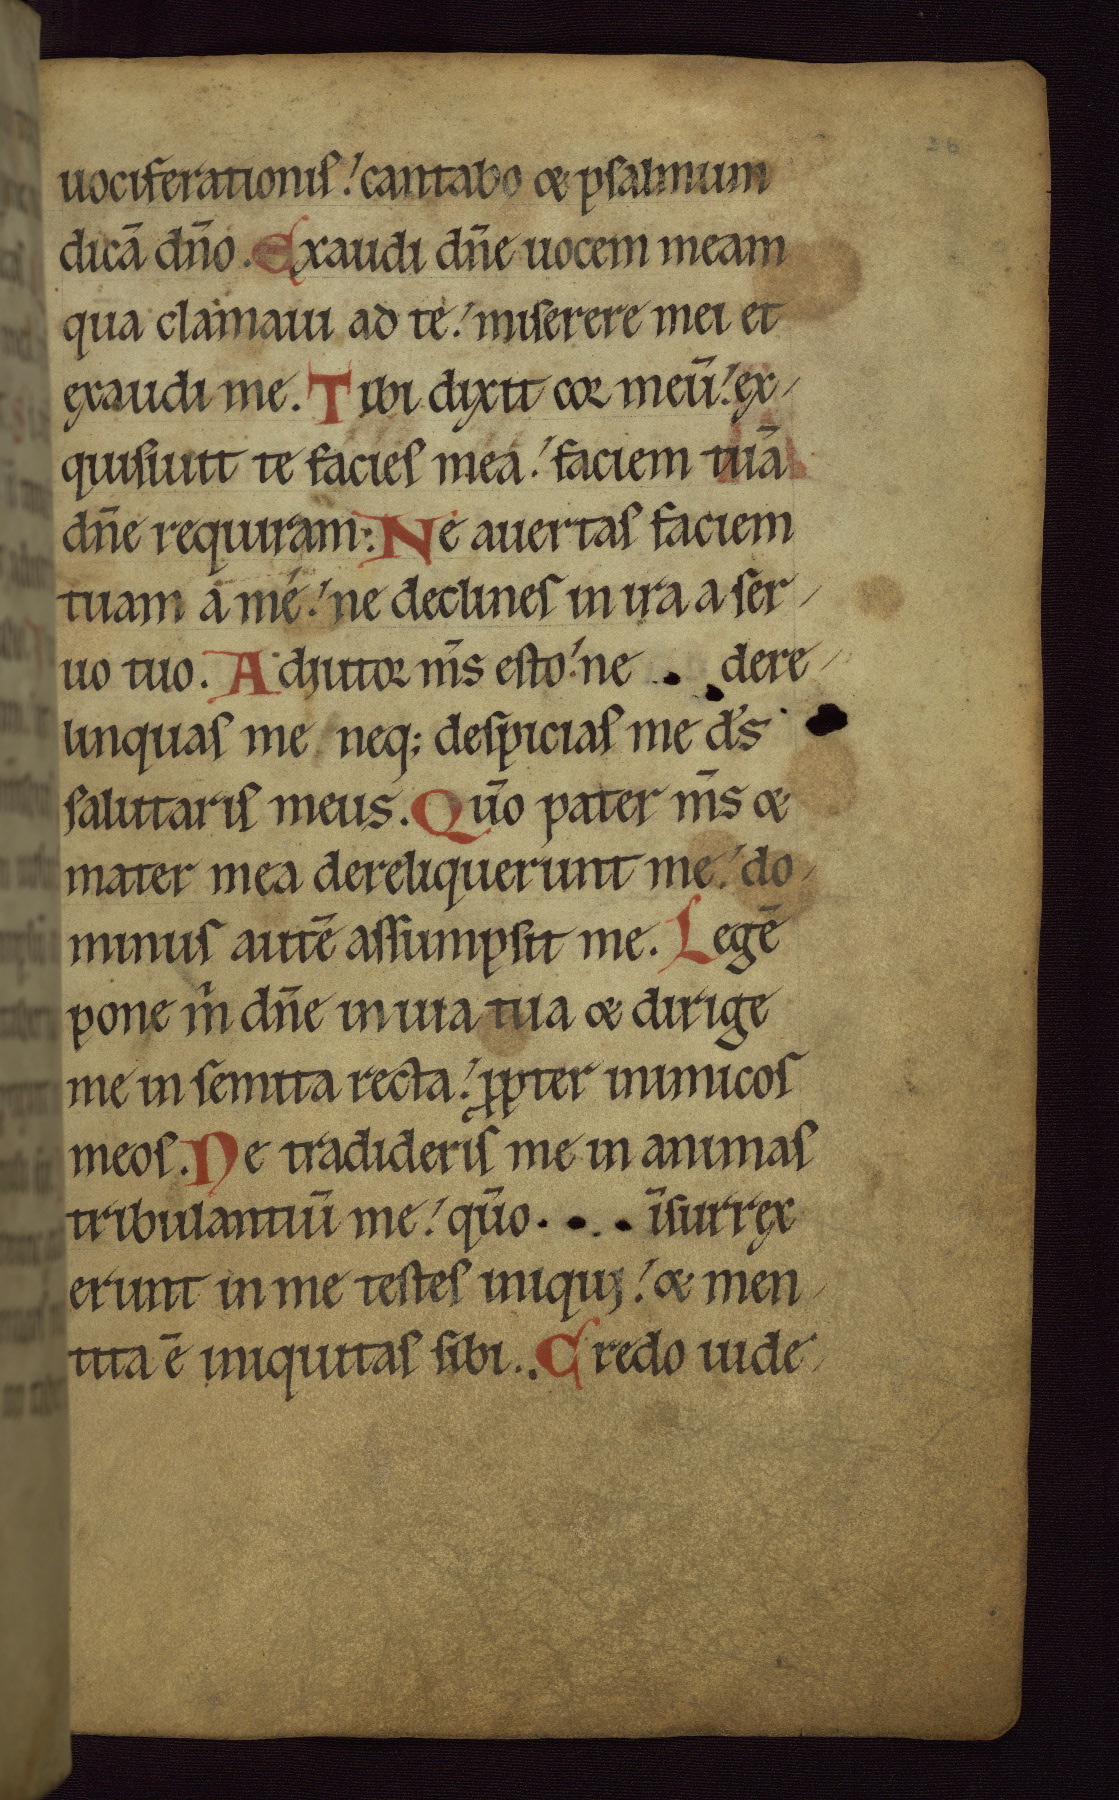 uociferationis! cantabo & psalmum
dicā dn̄o. Exaudi dn̄e uocem meam
qua clamaui ad te! miserere mei et
exaudi me. Tibi dixit cor meū! ex-
quisiuit te facies mea! faciem tuā
dn̄e requiram: Ne auertas faciem
tuam a me! ne declines in ira a ser-
uo tuo. Adiutor m̄s esto! ne dere-
linquas me neq; despicias me d̄s
salutaris meus. Qūo pater m̄s &
mater mea dereliquerunt me! do-
minus autē assumpsit me. Legē
pone m̄ dn̄e in uia tua & dirige
me in semita recta! ꝓpter inimicos
meos. Ne tradideris me in animas
tribulantiū me! qūo īsurrex
erunt in me testes iniquij! & men-
tita ē iniquitas sibi. Credo uide-
28